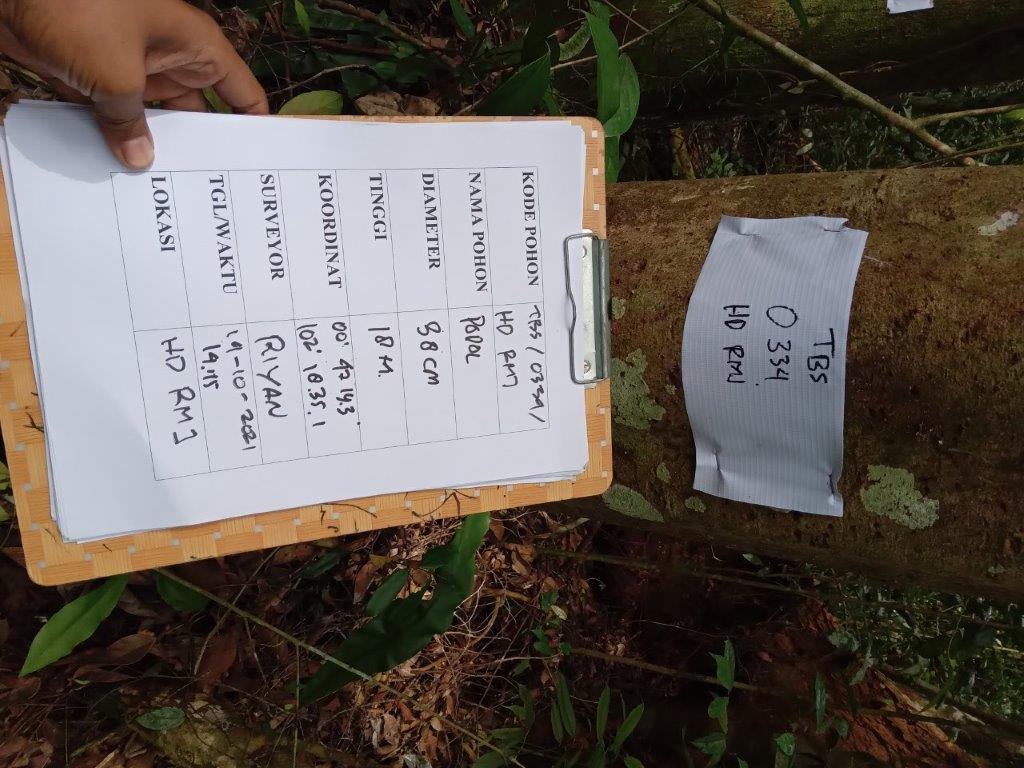 TBS
0 334
HD RMJ
KODE POHON TBS / 0334 /
HD RMJ
NAMA POHON POPOL
DIAMETER 38 CM
TINGGI 18 M.
KOORDINAT 00° 42 14.3"
102° 18.35.1
SURVEYOR RIYAN
TGL/WAKTU 19-10-2021
LOKASI HD RMJ